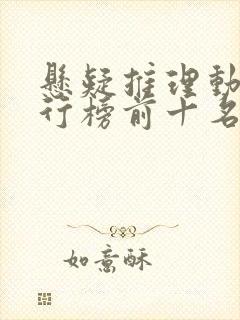 悬疑推理動
行榜前十名
如意酥